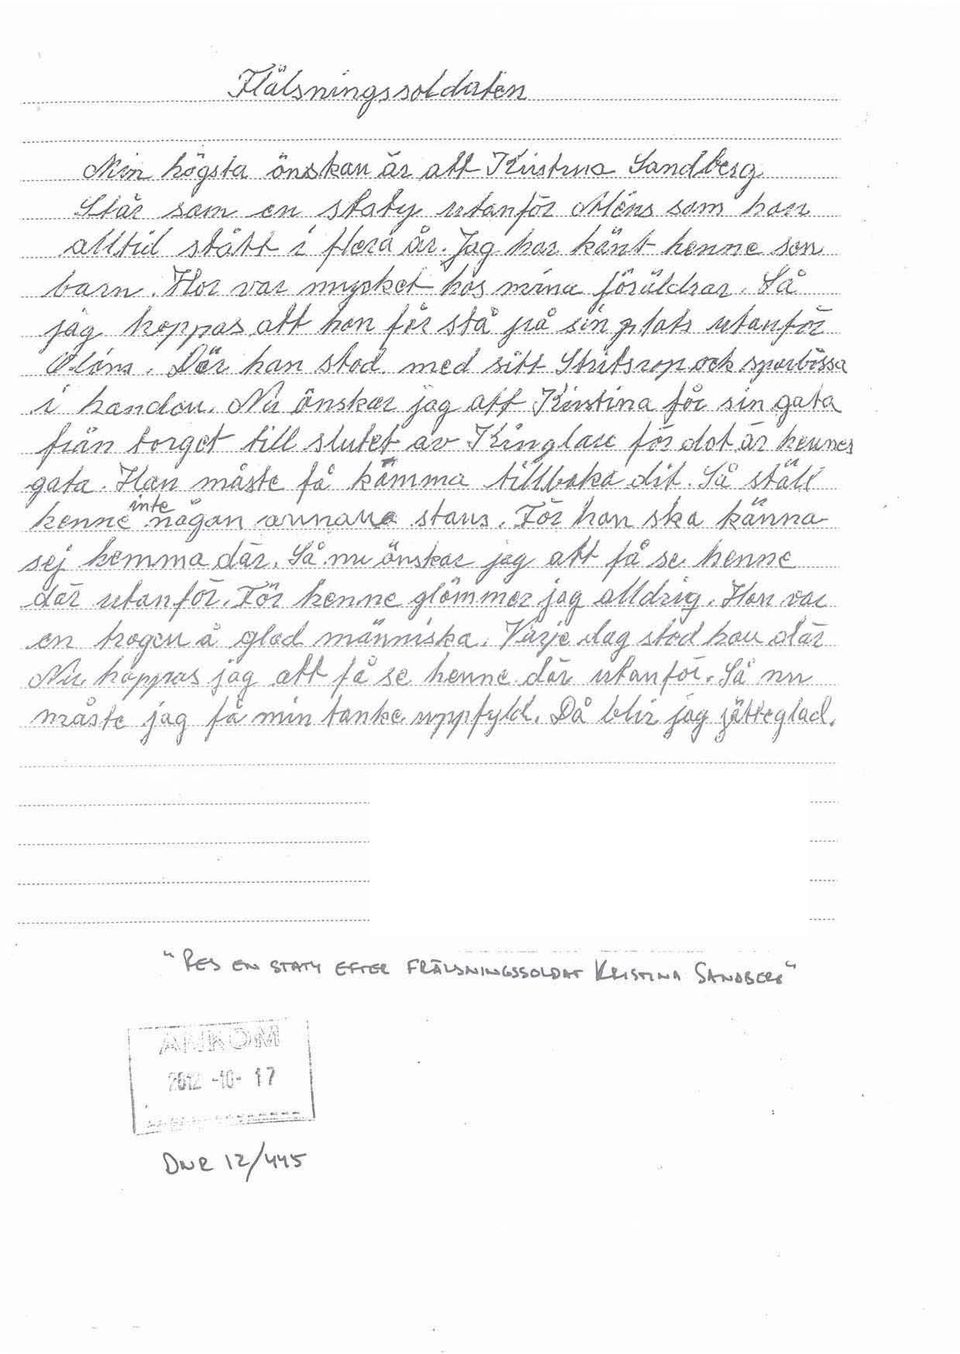 Flälsningssoldaten
Min högsta önskan är att Kristina Sandberg
Står som en staty utanför Åléns som hon
alltid stått i flera år. Jag har känt henne sen
barn. Hon var mycket hos mina föräldrar. Så
jag hoppas att hon får stå på sin plats utanför
Åléns. Där hon stod med sitt Stridsrop och sparbössa
i handen. Nu önskar jag att Kristina får sin gata
från torget till slutet av Kinglare för det är hennes
gata. Hon måste få komma tillbaka dit. Så ställ
henne inte någon annana stans. För hon ska känna
sej hemma där. Så nu önskar jag att få se henne
där utanför. För henne glömmer jag alldrig. Hon var
en trogen å glad människa. Varje dag stod hon där
Nu hoppas jag att få se henne där utanför. Så nu
måste jag få min tanke uppfyld. Då blir jag jätteglad.
"RES EN STATY EFTER FRÄLSNINGSSOLDAT KRISTINA SANDBERG"
ANKOM
2012 -10- 17
DNR 12/445